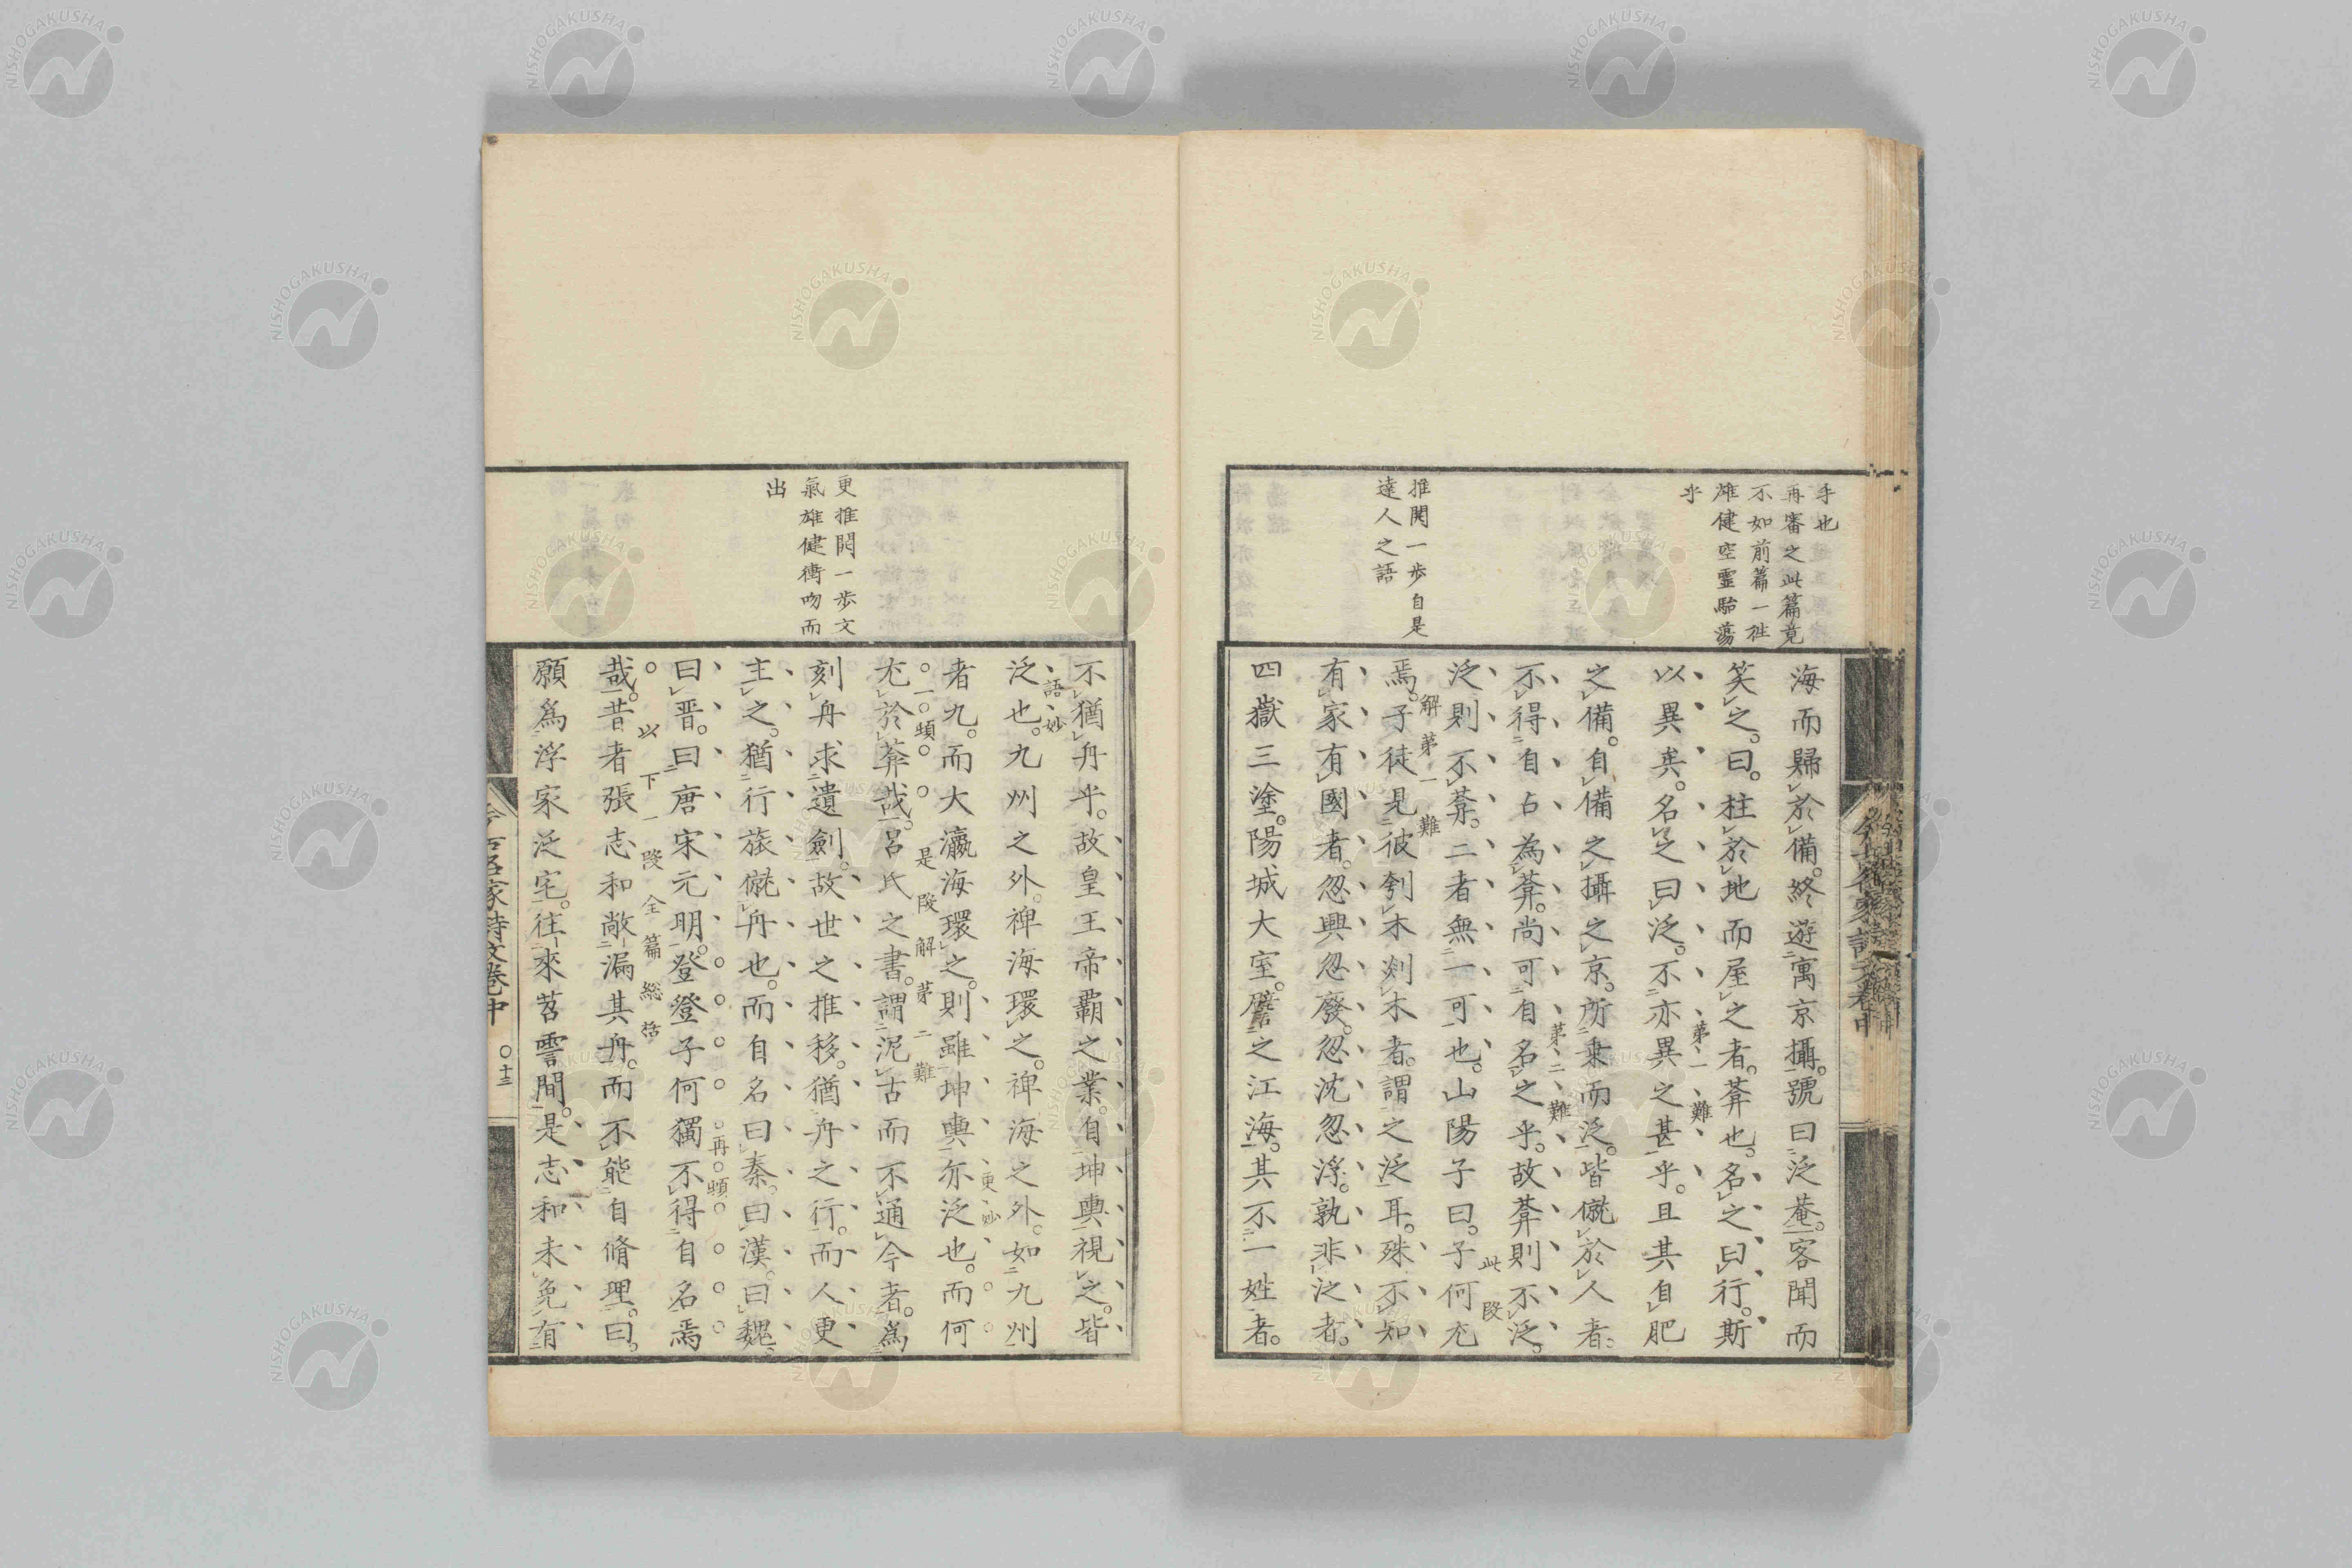 手也
再審之此篇竟
不如前篇一徃
雄健空靈駘蕩
乎
推開一歩自是
達人之語
海而歸於備。終遊寓京攝。號曰泛菴。客聞而
笑之。曰。柱於地而屋之者。葊也。名之曰行。斯
以異矣。名之曰泛。不亦異之甚乎。且其自肥
第一難
之備。自備之攝之京。所乗而泛。皆僦於人者。
不得自占為葊。尚可自名之乎。故葊則不泛。
第二難
泛則不葊。二者無一可也。山陽子曰。子何尤
此段
焉。子徒見彼刳木剡木者。謂之泛耳。殊不知
解第一難
有家有國者。忽興忽廢。忽沈忽浮。孰非泛者。
四嶽三塗。陽城大室。譬之江海。其不一姓者。
更推開一歩文
氣雄健衝吻而
出
不猶舟乎。故皇王帝覇之業。自坤輿視之。皆
泛也。九州之外。裨海環之。裨海之外。如九州
語妙
者九。而大瀛海環之。則雖坤輿亦泛也。而何
更妙
尤於葊哉。呂氏之書。謂泥古而不通今者。爲
一頓
是段解第二難
刻舟求遺劍。故世之推移。猶舟之行。而人更
主之。猶行旅僦舟也。而自名曰秦。曰漢。曰魏。
曰晋。曰唐宋元明。登登子何獨不得自名焉
再頓
哉。昔者張志和敞漏其舟。而不能自脩理。曰。
以下一段全篇総括
願爲浮家泛宅。往來苕霅間。是志和未免有
今古名家詩文卷中
〇十三